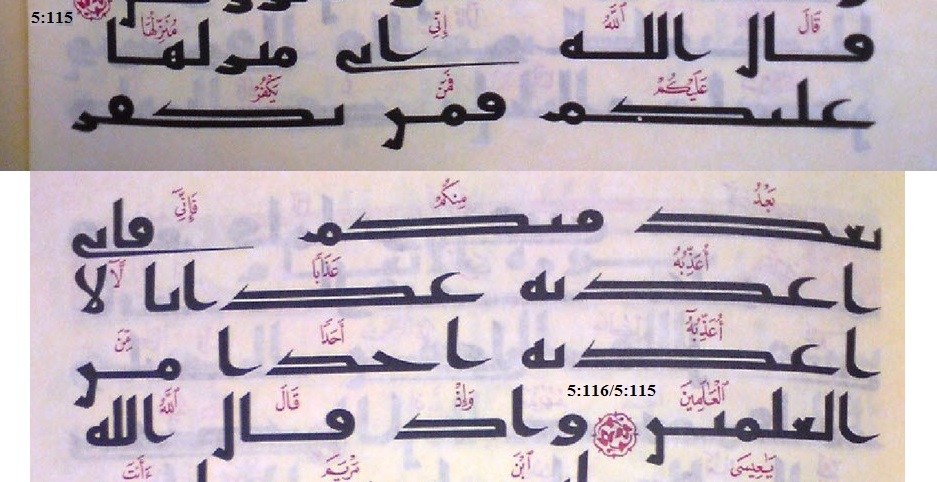 5:115
قَالَ ٱللَّهُ إِنِّي مُنَزِّلُهَا
قال الله انى منزلها
عَلَيْكُمْ فَمَن يَكْفُرْ
عليكم فمن يكفر
بَعْدُ مِنكُمْ فَإِنِّيٓ
بعد منكم فانى
أُعَذِّبُهُ عَذَابًا لَّآ
اعذبه عذابا لا
أُعَذِّبُهُۥٓ أَحَدًا مِّنَ
اعذبه احدا من
ٱلْعَالَمِينَ 5:116/5:115 وَإِذْ قَالَ ٱللَّهُ
العلمين واذ قال الله
يَٰعِيسَى ٱبْنَ مَرْيَمَ ءَأَنتَ